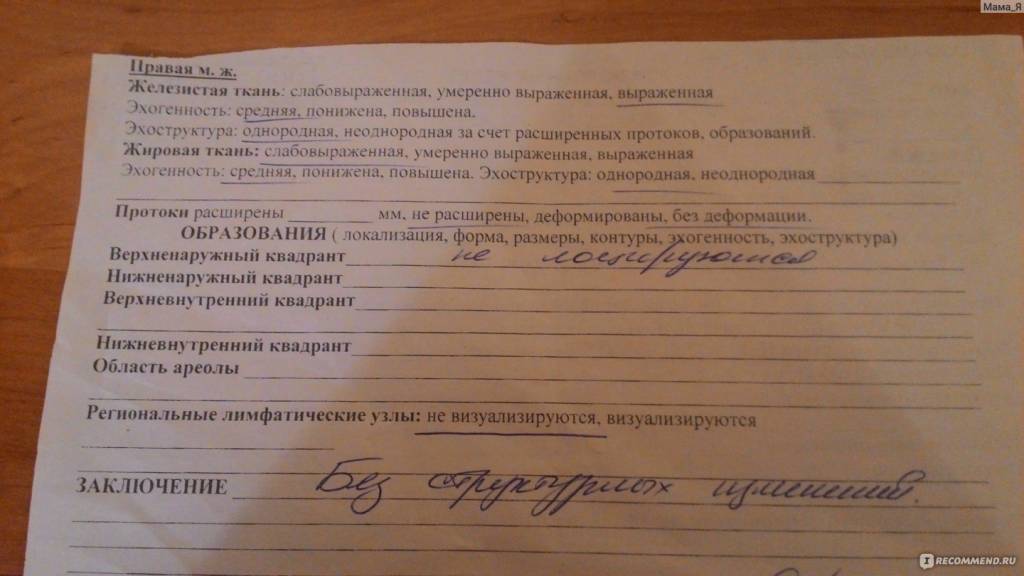 Мама_Я
Правая м. ж.
Железистая ткань: слабовыраженная, умеренно выраженная, выраженная
Эхогенность: средняя, понижена, повышена.
Эхоструктура: однородная, неоднородная за счет расширенных протоков, образований.
Жировая ткань: слабовыраженная, умеренно выраженная, выраженная
Эхогенность: средняя, понижена, повышена. Эхоструктура: однородная, неоднородная
Протоки расширены ________ мм, не расширены, деформированы, без деформации.
ОБРАЗОВАНИЯ ( локализация, форма, размеры, контуры, эхогенность, эхоструктура)
Верхненаружный квадрант не лоцируются
Нижненаружный квадрант
Верхневнутренний квадрант
Нижневнутренний квадрант
Область ареолы
Региональные лимфатические узлы: не визуализируются, визуализируются
ЗАКЛЮЧЕНИЕ Без структурных изменений.
IRECOMMEND.RU